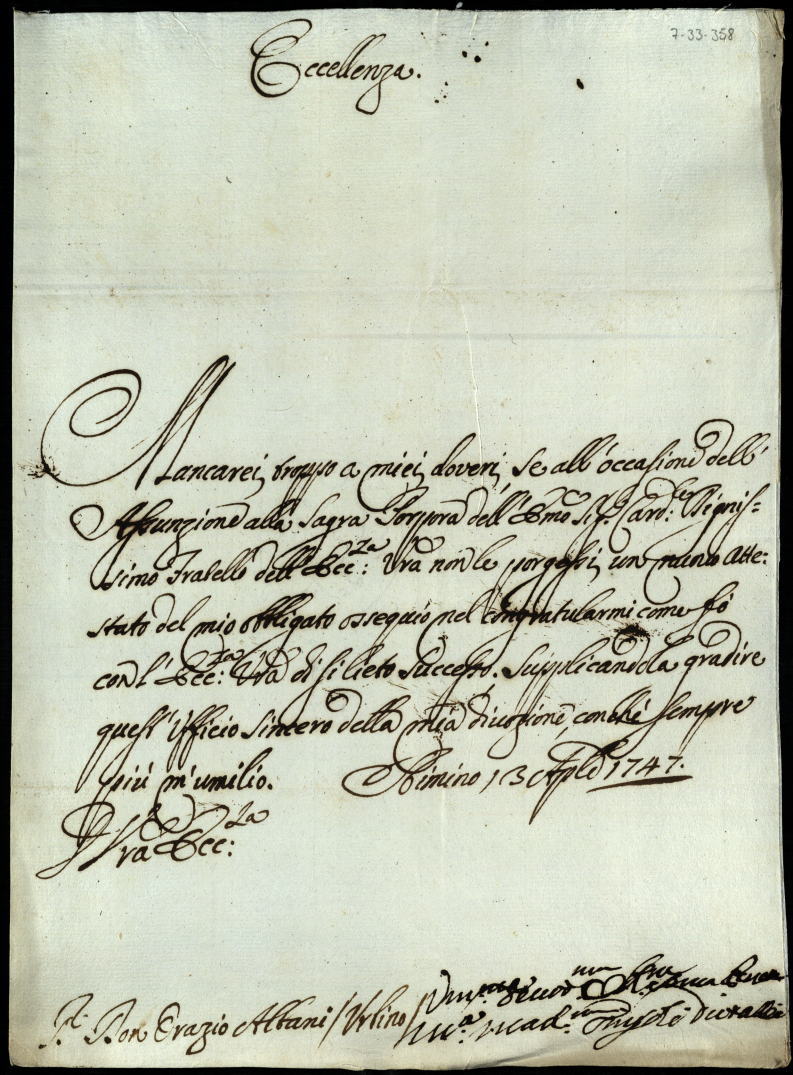 7-33-358
Eccellenza.
Mancarei troppo a miei doveri, se all'occasione dell'
Assunzione alla Sagra Porpora dell'Emo Sigr. Card.le Dignis=
simo Fratello dell'Ecc:za Vra non le porgessi un nuovo atte=
stato del mio obbligato ossequio nel congratularmi come fò
con l'Ecc:za Vra di sì lieto successo. Supplicandola gradire
quest'Ufficio sincero della mia divozione, con che sempre
più m'umilio. Rimino 13 Aple 1747.
Di Vra Ecc:za
Don Orazio Albani / Urbino /